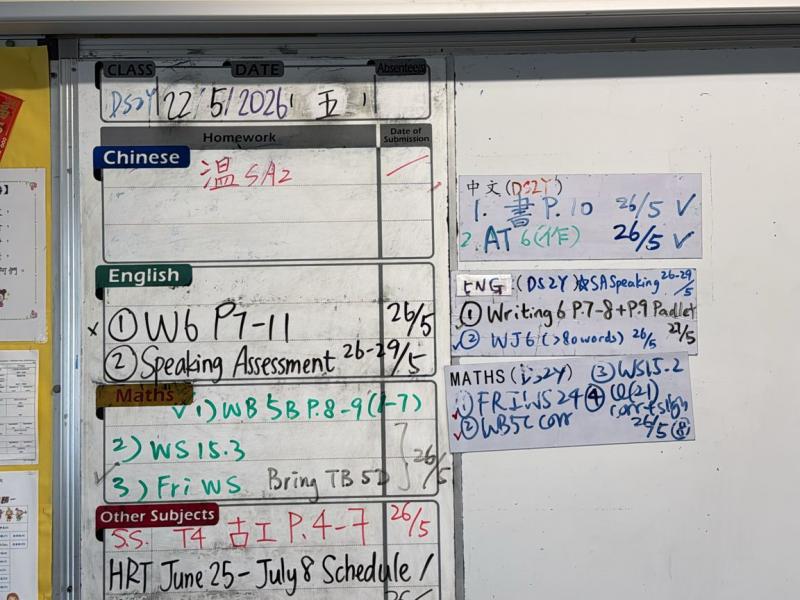 CLASS DATE Absentees
DS2Y 22/5/2026 五
Homework Date of Submission
Chinese
温 SA2
English
① W6 P7-11 26/5
② Speaking Assessment 26-29/5
Maths
1) WB 5B P.8-9(1-7)
2) WS 15.3
3) Fri WS Bring TB 5D 26/5
Other Subjects
S.S. T4 古工 P.4-7 26/5
HRT June 25-July 8 Schedule /
中文(DS2Y)
1. 書 P.10 26/5 ✓
2. AT 6(作) 26/5 ✓
ENG (DS2Y) ☆SA Speaking 26-29/5
① Writing 6 P.7-8+P.9 Padlet 27/5
② WJ6 (>80words) 26/5
MATHS ( 2Y) ③ WS15.2
① FRI WS 24 ④ corr+sign
② WB5C corr 26/5